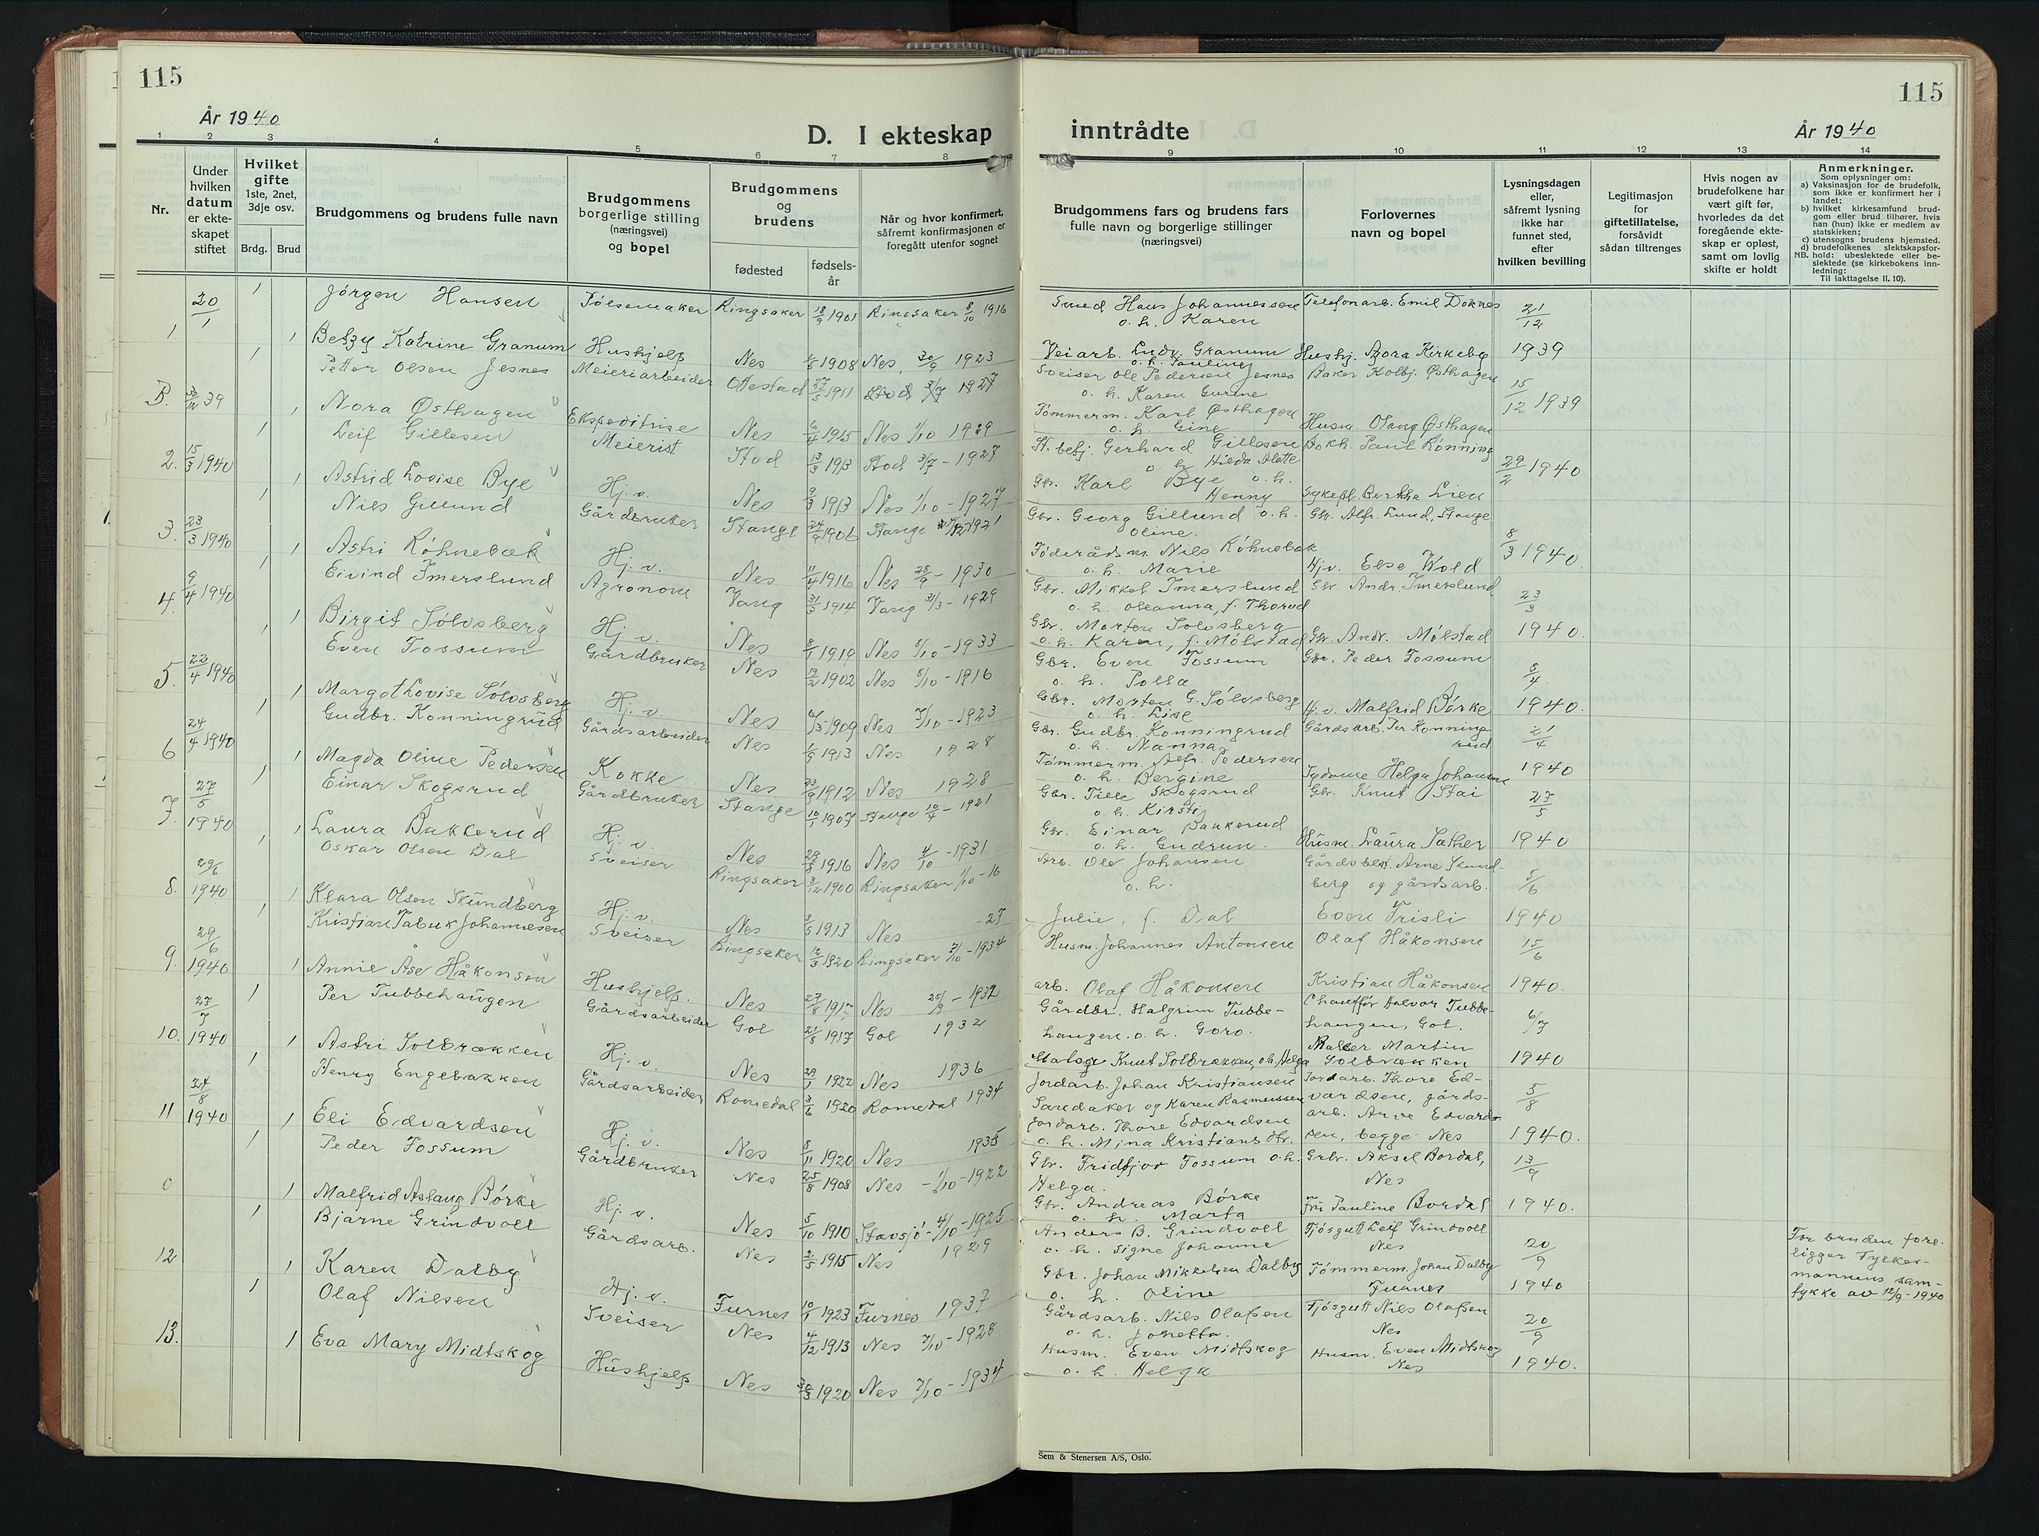 115
År 1940
D. I ekteskap
1 2 3 4 5 6 7 8
Nr.
Under hvilken datum er ekteskapet stiftet
Hvilket gifte 1ste, 2net, 3dje osv.
Brdg. Brud
Brudgommens og brudens fulle navn
Brudgommens borgerlige stilling (næringsvei) og bopel
Brudgommens og brudens
fødested fødselsår
Når og hvor konfirmert, såfremt konfirmasjonen er foregått utenfor sognet
20/1 1 Jørgen Hansen Sølesmaker Ringsaker 18/9 1901 Ringsaker 8/10 1916
1 1 Betzy Katrine Granum Hushjelp Nes 1908 Nes, 30/9 1923
1 Petter Olsen Jesnes Meieriarbeider Ottestad 27/5 1911 Stod 3/7 1927
B. 39 1 Nora Østhagen Ekspeditrise Nes 6/4 1915 Nes 1/10 1929
1 Leif Gillesen Meierist Stod 13/3 1913 Stod 3/7 - 1927
2. 15/3 1940 1 Astrid Lovise Bye Hj. v. Nes 9/3 1913 Nes 1/10 - 1927
1 Nils Gillund Gårdbruker Stange 24/9 1906 Stange 1921
3. 23/3 1940 1 Astri Røhnebæk Hj. v. Nes 11/4 1916 Nes 28/9 - 1930
1 Eivind Imerslund Agronom Vang 31/5 1914 Vang 31/3 - 1929
4. 9/4 1940 1 Birgit Sølvsberg Hj. v. Nes 8/1 1919 Nes 1/10 - 1933
1 Even Fossum Gårdbruker Nes 19/2 1902 Nes 8/10 - 1916
5. 22/4 1940 1 Margot Lovise Sølvsberg Hj. v. Nes 1909 Nes 7/10 - 1923
1 Gudbr. Konningrud Gårdsarbeider Nes 1913 Nes 1928
6 24/4 1940 1 Magda Oline Pedersen Kokke Nes 1912 Nes 1928
1 Einar Skogsrud Gårdbruker Stange 10/1 1907 Stange 10/4 - 1921
7. 27/5 1940 1 Laura Bakkerud Hj. v. Nes 29/8 1916 Nes 4/10 - 1931
1 Oskar Olsen Dal Sveiser Ringsaker 3/12 1900 Ringsaker 1/10 - 16
8. 29/6 1940 1 Klara Olsen Skundberg Hj. v. Nes 3/5 1913 Nes - 27
1 Kristian Tabuk Johannesen Sveiser Ringsaker 1920 Ringsaker 7/10 - 1934
9. 29/6 1940 1 Annie Åse Håkonsen Hushjelp. Nes 27/8 Nes - 1932
1 Per Tubbehaugen Gårdsarbeider Gol 21/8 1917 Gol 1932
10. 27/7 1940 1 Astri Solbrækken Hj. v. Nes 29/1 1922 Nes 1936
1 Henry Engebakken Gårdsarbeider Romedal 3/6 1920 Romedal 1934
11 24/8 1940 1 Eli Edvardsen Hj. v. Nes 8/11 1920 Nes 1935
1 Peder Fossum Gårdbruker Nes 25/8 1908 Nes - 1/10 - 1922
0 1 Malfrid Aslaug Børke Hj. v. Nes 5/10 1910 Stavsjø - 4/10 - 1925
1 Bjarne Grindvoll Gårdsarb. Nes 2/5 1915 Nes 1929
12 1 Karen Dalby Hj. v. Furnes 10/1 1923 Furnes 1937
1 Olaf Nilsen Sveiser Nes 4/12 1913 Nes 7/10 - 1928
13. 1 Eva Mary Midtskog Hushjelp Nes 30/3 1920 Nes 7/10 - 1934
115
inntrådte
År 1940
9 10 11 12 13 14
Brudgommens fars og brudens fars fulle navn og borgerlige stillinger (næringsvei)
Forlovernes navn og bopel
Lysningsdagen eller, såfremt lysning ikke har funnet sted, efter hvilken bevilling
Legitimasjon for giftetillatelse, forsåvidt sådan tiltrenges
Hvis nogen av brudefolkene har vært gift før, hvorledes da det foregående ekteskap er opløst, samt om lovlig skifte er holdt
Anmerkninger.
Som oplysninger om:
a) Vaksinasjon for de brudefolk, som ikke er konfirmert her i landet;
b) hvilket kirkesamfund brudgom eller brud tilhører, hvis han (hun) ikke er medlem av statskirken;
c) utensogns brudens hjemsted.
d) brudefolkenes slektskapsforhold: ubeslektede eller beslektede (se kirkebokens innledning:
NB.
Til iakttagelse II. 10).
Smed Hans Johannessen Telefonarb. Emil Doknes 21/12
o. h. Karen
Veiarb. Ludv. Granum Hushj. Bora Kirkeby 1939
o. h. Pauline
Sveiser Ole Pedersen Jesnes Baker Kolbj. Østhagen 15/12 1939
o. h. Karen Gurine
Tømmerm. Karl Østhagen Husm. Olaug Østhagen
o. h. Gine
St. betj. Gerhard Gillesen Bokh. Paul Rønning 29/2 1940
o. h Hilda Alette
Gbr. Karl Bye o. h. Sykepl. Berthe Lien
Henny
Gbr. Georg Gillund o. h. Gbr. Alfr. Lund, Stange 8/3 1940.
Oline.
Føderådsm. Nils Røhnebæk Hj.v. Else Wold
o. h. Marie
Gbr. Mikkel Imerslund Gbr. Andr. Imerslund 23/3
o. h. Oleanna, f. Thorud
Gbr. Morten Sølvsberg Gbr. Andr. Mølstad 1940.
o. h. Karen, f. Mølstad
Gbr. Even Fossum Gbr. Peder Fossum 8/4.
o. h. Polla
Gbr. Morten G. Sølvsberg Hj. v. Malfrid Børke 1940.
o. h. Lise
Gbr. Gudbr. Konningrud Gårdsarb. Per Konningrud 21/4
o. h. Nanna
Tømmerm. Alfr. Pedersen Sydame Helga Johansen 1940
o. h. Bergine
Gbr. Tille Skogsrud Gbr. Knut Stai 27/5
o. h. Kirsti
Gbr. Einar Bakkerud Husm. Laura Sæther 1940
o. h. Gudrun.
Arb. Ole Johansen Gårdsbest. Arne Skundberg og gårdsarb. 5/6
o. h.
Julie, f. Dal Even Frisli 1940
Husm. Johannes Antonsen Olaf Håkonsen 15/6
arb. Olaf Håkonsen Kristian Håkonsen 1940.
Gårdbr. Halgrim Tubbe- Chauffør Halvor Tubbe- 6/7
haugen o. h. Goro. haugen, Gol.
Malsgr Knut Solbrækken, o.h. Helga Maler Martin Solbrækken 1940
Jordarb. Johan Kristiansen Jordarb. Thore Ed- 5/8
Saredaker og Karen Rasmussen vardsen, gårds-
Jordarb. Thore Edvardsen arb. Arne Edvard-
o. h. Mina Kristiansdtr. sen, begge Nes 1940.
Gbr. Fridtjov Fossum o. h. Grbr. Aksel Bordal, 13/9
Helga. Nes
Gbr. Andreas Børke Fru Pauline Bordal 1940.
o. h. Marta
Anders B. Grindvoll Fjøsgutt Leif Grindvoll 20/9
o. h. Signe Johanne Nes
Gbr. Johan Mikkelsen Dalby Tømmerm. Johan Dalby 1940
o. h. Oline Furnes
For bruden foreligger Fylkesmannens samtykke av 12/9 - 1940
Gårdsarb. Nils Olafsen Fjøsgutt Nils Olafsen 20/9
o. h. Jonetta. Nes
Husm. Even Midtskog Husm. Even Midtskog 1940.
o. h. Helga Nes
Sem & Stenersen A/S, Oslo.